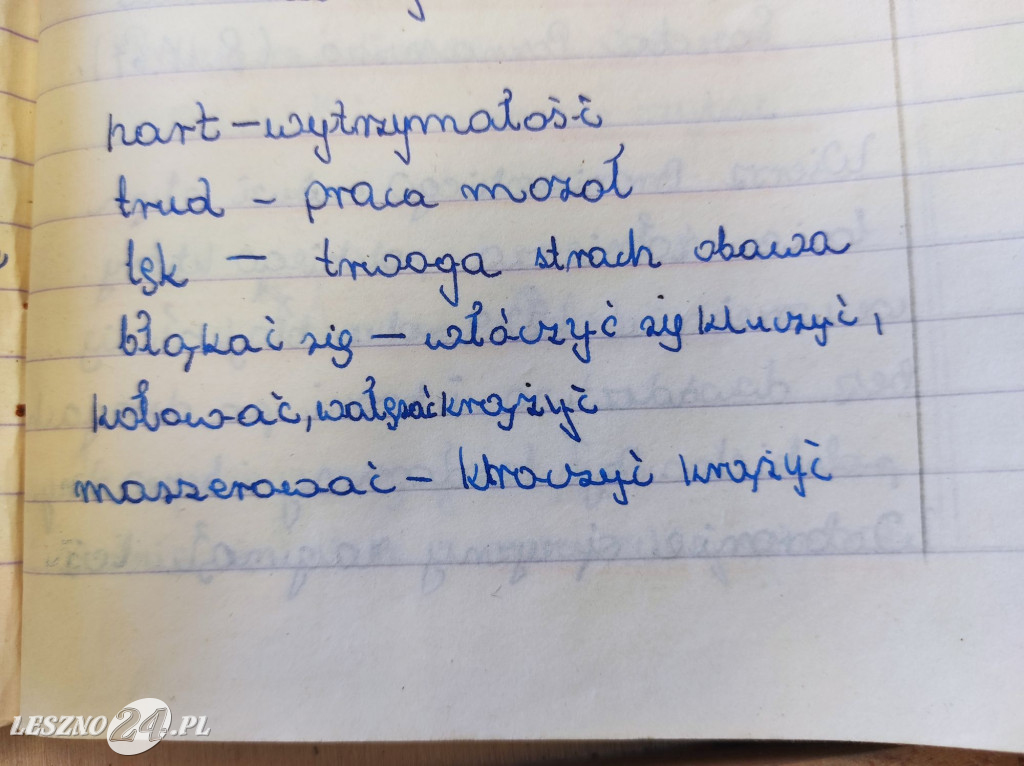 hart – wytrzymałość
trud – praca mozoł
lęk – trwoga strach obawa
błąkać się – włóczyć się kluczyć,
kołować, wałęsać krążyć
maszerować – kroczyć krążyć
LESZNO24.PL